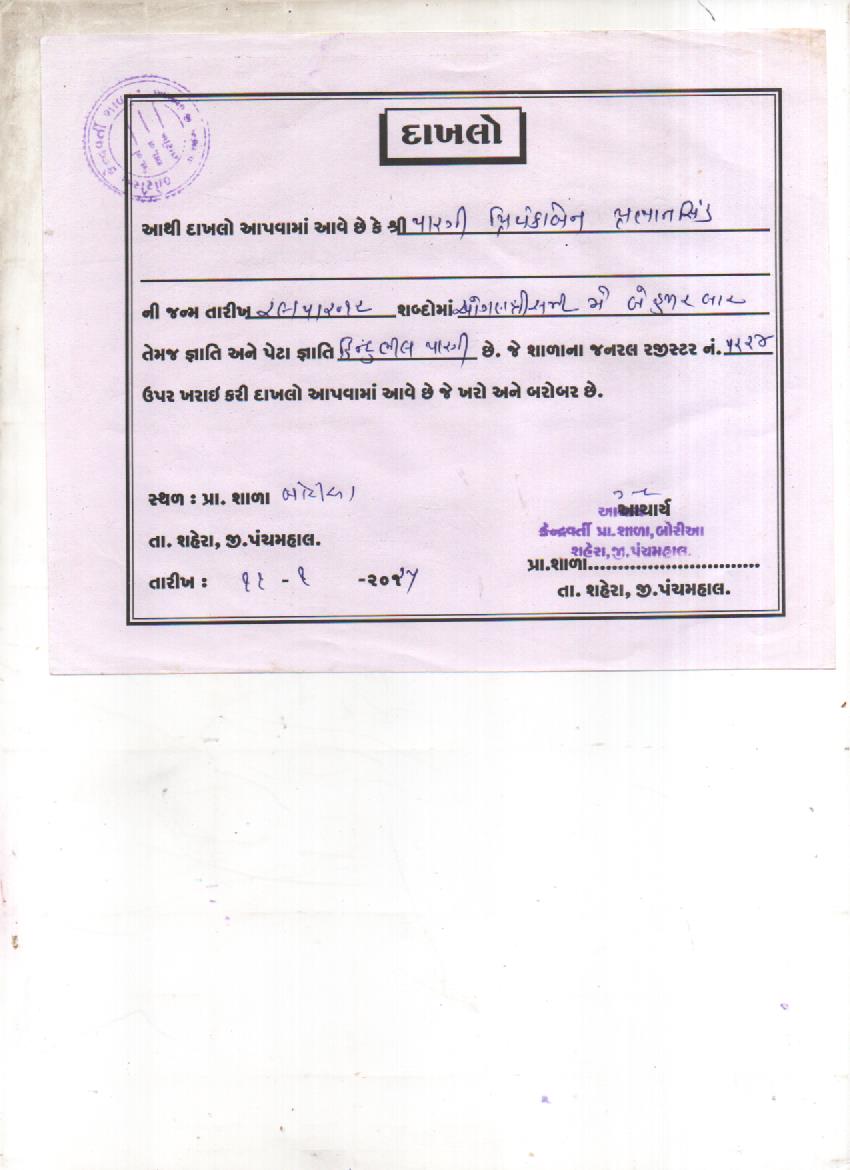 કેન્દ્રવર્તી શાળા
દાખલો
આથી દાખલો આપવામાં આવે છે કે શ્રી પારગી પ્રિયંકાબેન પ્રતાપસિંહ
ની જન્મ તારીખ ૨૯/૫/૨૦૧૨ શબ્દોમાં ઓગણત્રીસમી મે બે હજાર બાર
તેમજ જ્ઞાતિ અને પેટા જ્ઞાતિ હિન્દુ ભીલ પારગી છે. જે શાળાના જનરલ રજીસ્ટર નં. ૫૨૨૪
ઉપર ખરાઇ કરી દાખલો આપવામાં આવે છે જે ખરો અને બરોબર છે.
સ્થળ : પ્રા. શાળા બોરીયા
આચાર્ય
કેન્દ્રવર્તી પ્રા.શાળા,બોરીઆ
તા. શહેરા, જી.પંચમહાલ.
શહેરા,જી.પંચમહાલ.
પ્રા.શાળા..............................
તારીખ : ૧૬ - ૧ -૨૦૧૫
તા. શહેરા, જી.પંચમહાલ.